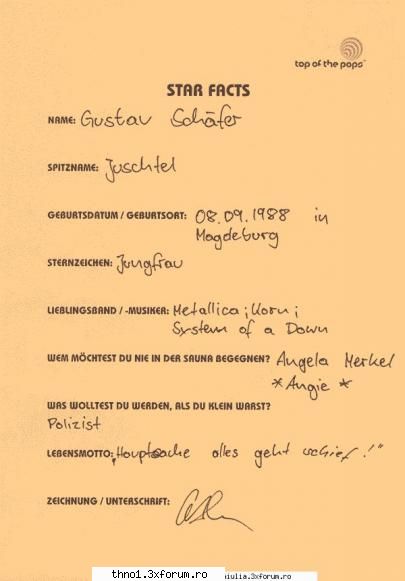 top of the pops
STAR FACTS
NAME: Gustav Schäfer
SPITZNAME: Juschtel
GEBURTSDATUM / GEBURTSORT: 08.09.1988 in
Magdeburg
STERNZEICHEN: Jungfrau
LIEBLINGSBAND / -MUSIKER: Metallica; Korn;
System of a Down
WEM MÖCHTEST DU NIE IN DER SAUNA BEGEGNEN? Angela Merkel
*Angie*
WAS WOLLTEST DU WERDEN, ALS DU KLEIN WARST?
Polizist
LEBENSMOTTO: „Hauptsache alles geht schief!"
ZEICHNUNG / UNTERSCHRIFT:
thno1.3xforum.ro
giulia.3xforum.ro